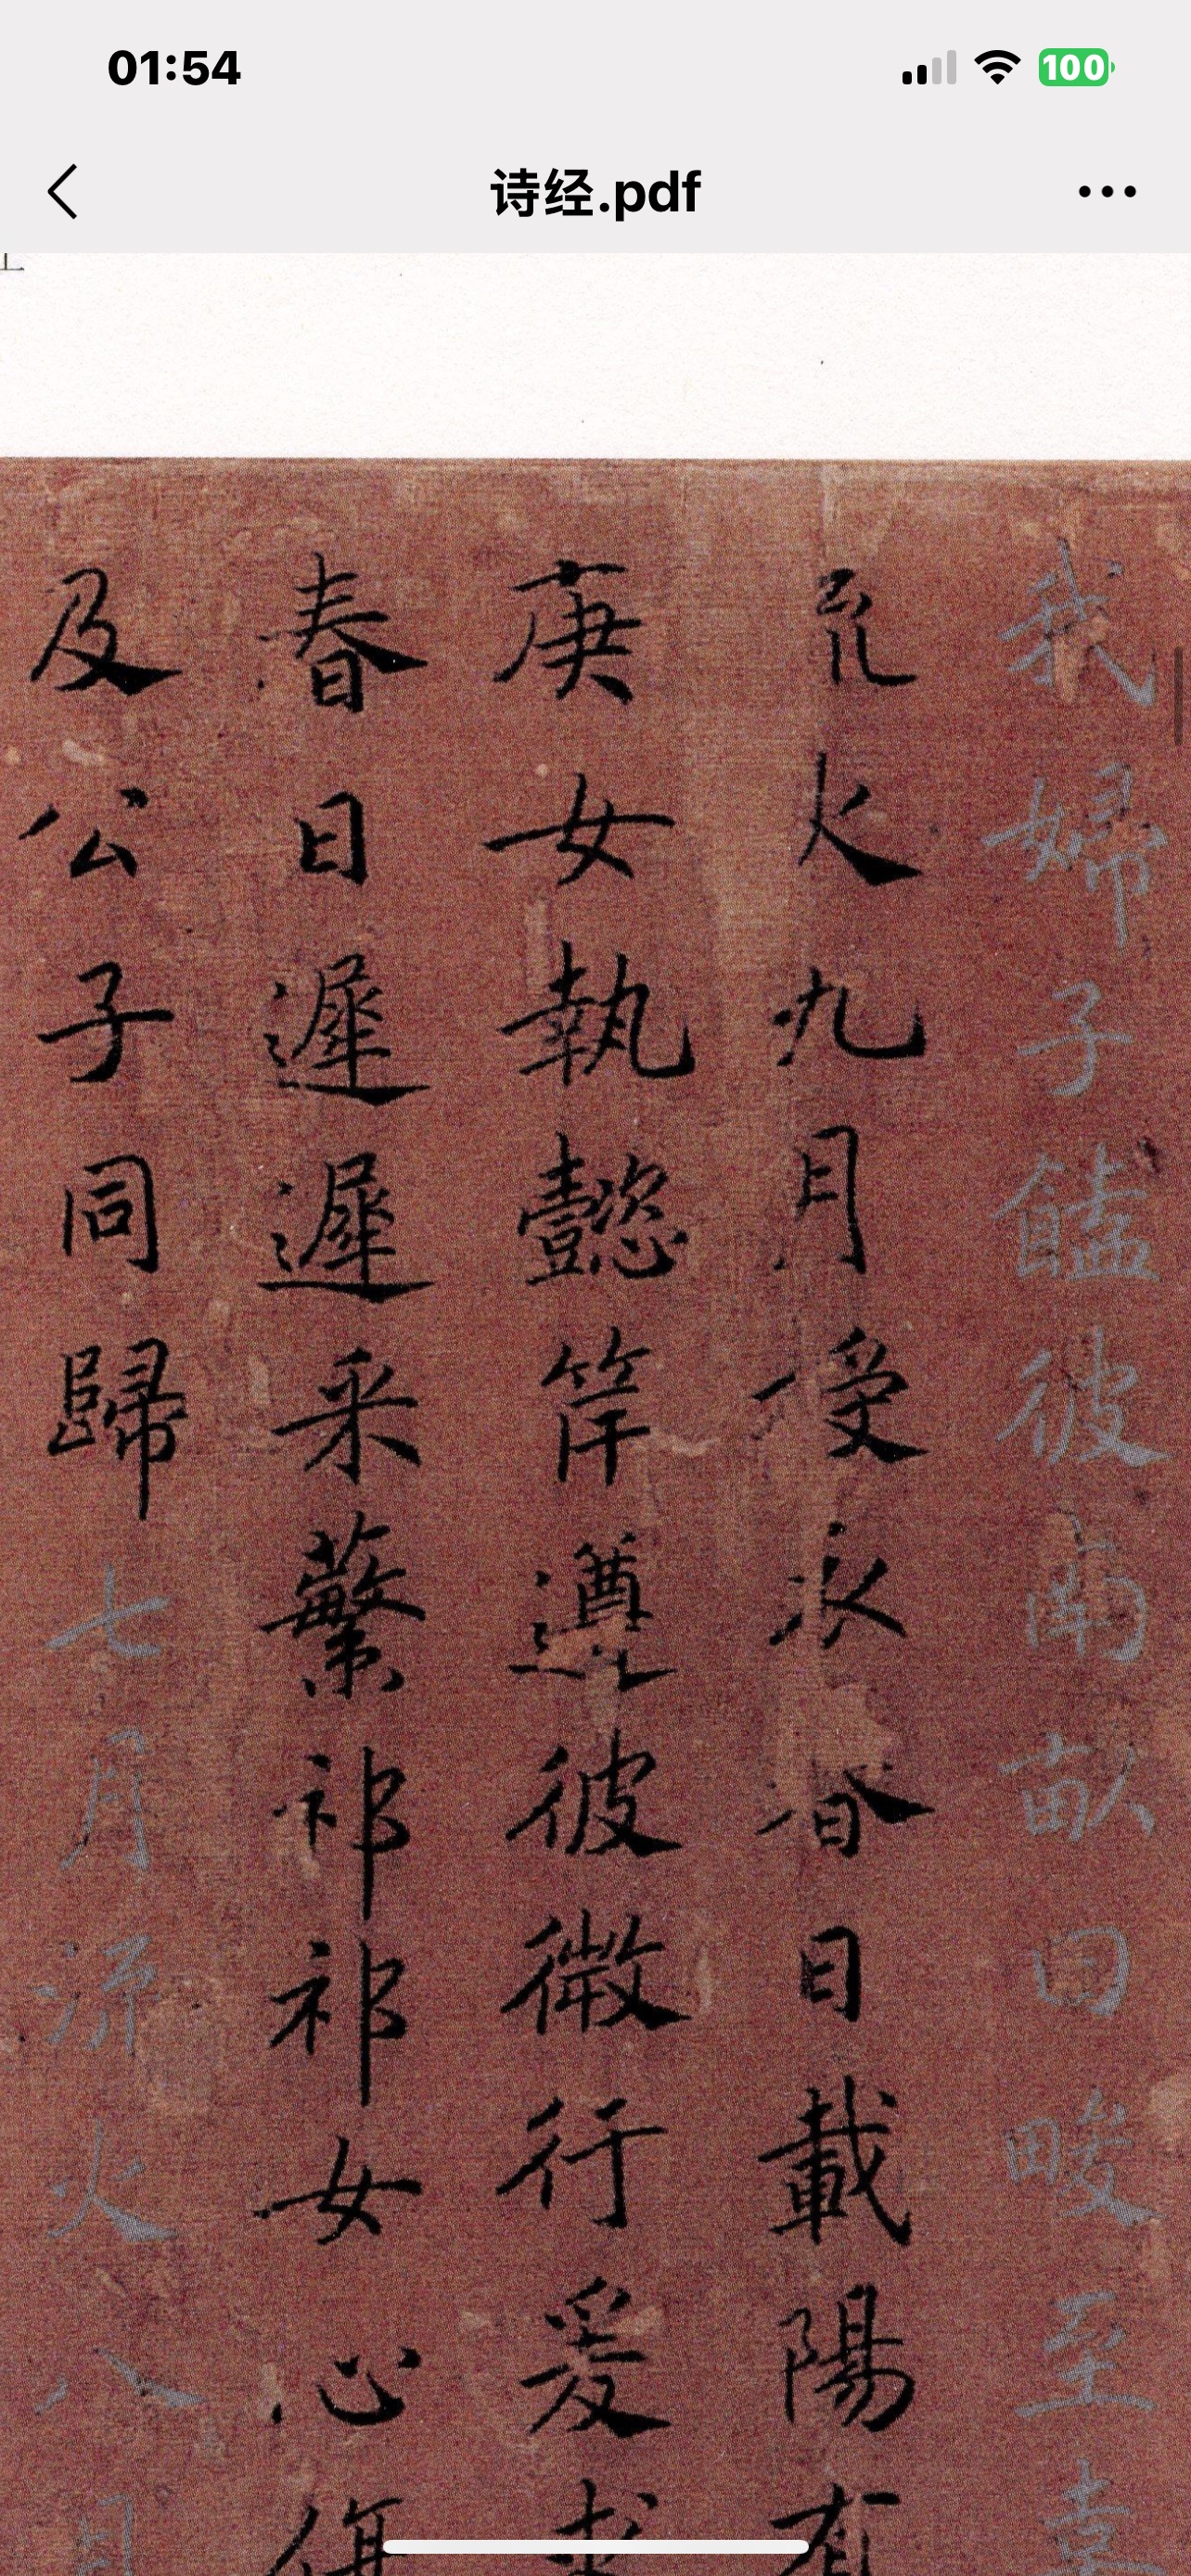 01:54 100
诗经.pdf
我婦子饁彼南畝田畯至喜
流火九月受衣春日載陽有
庚女執懿筐遵彼微行爰求
春日遲遲采蘩祁祁女心傷
及公子同歸七月流火八月